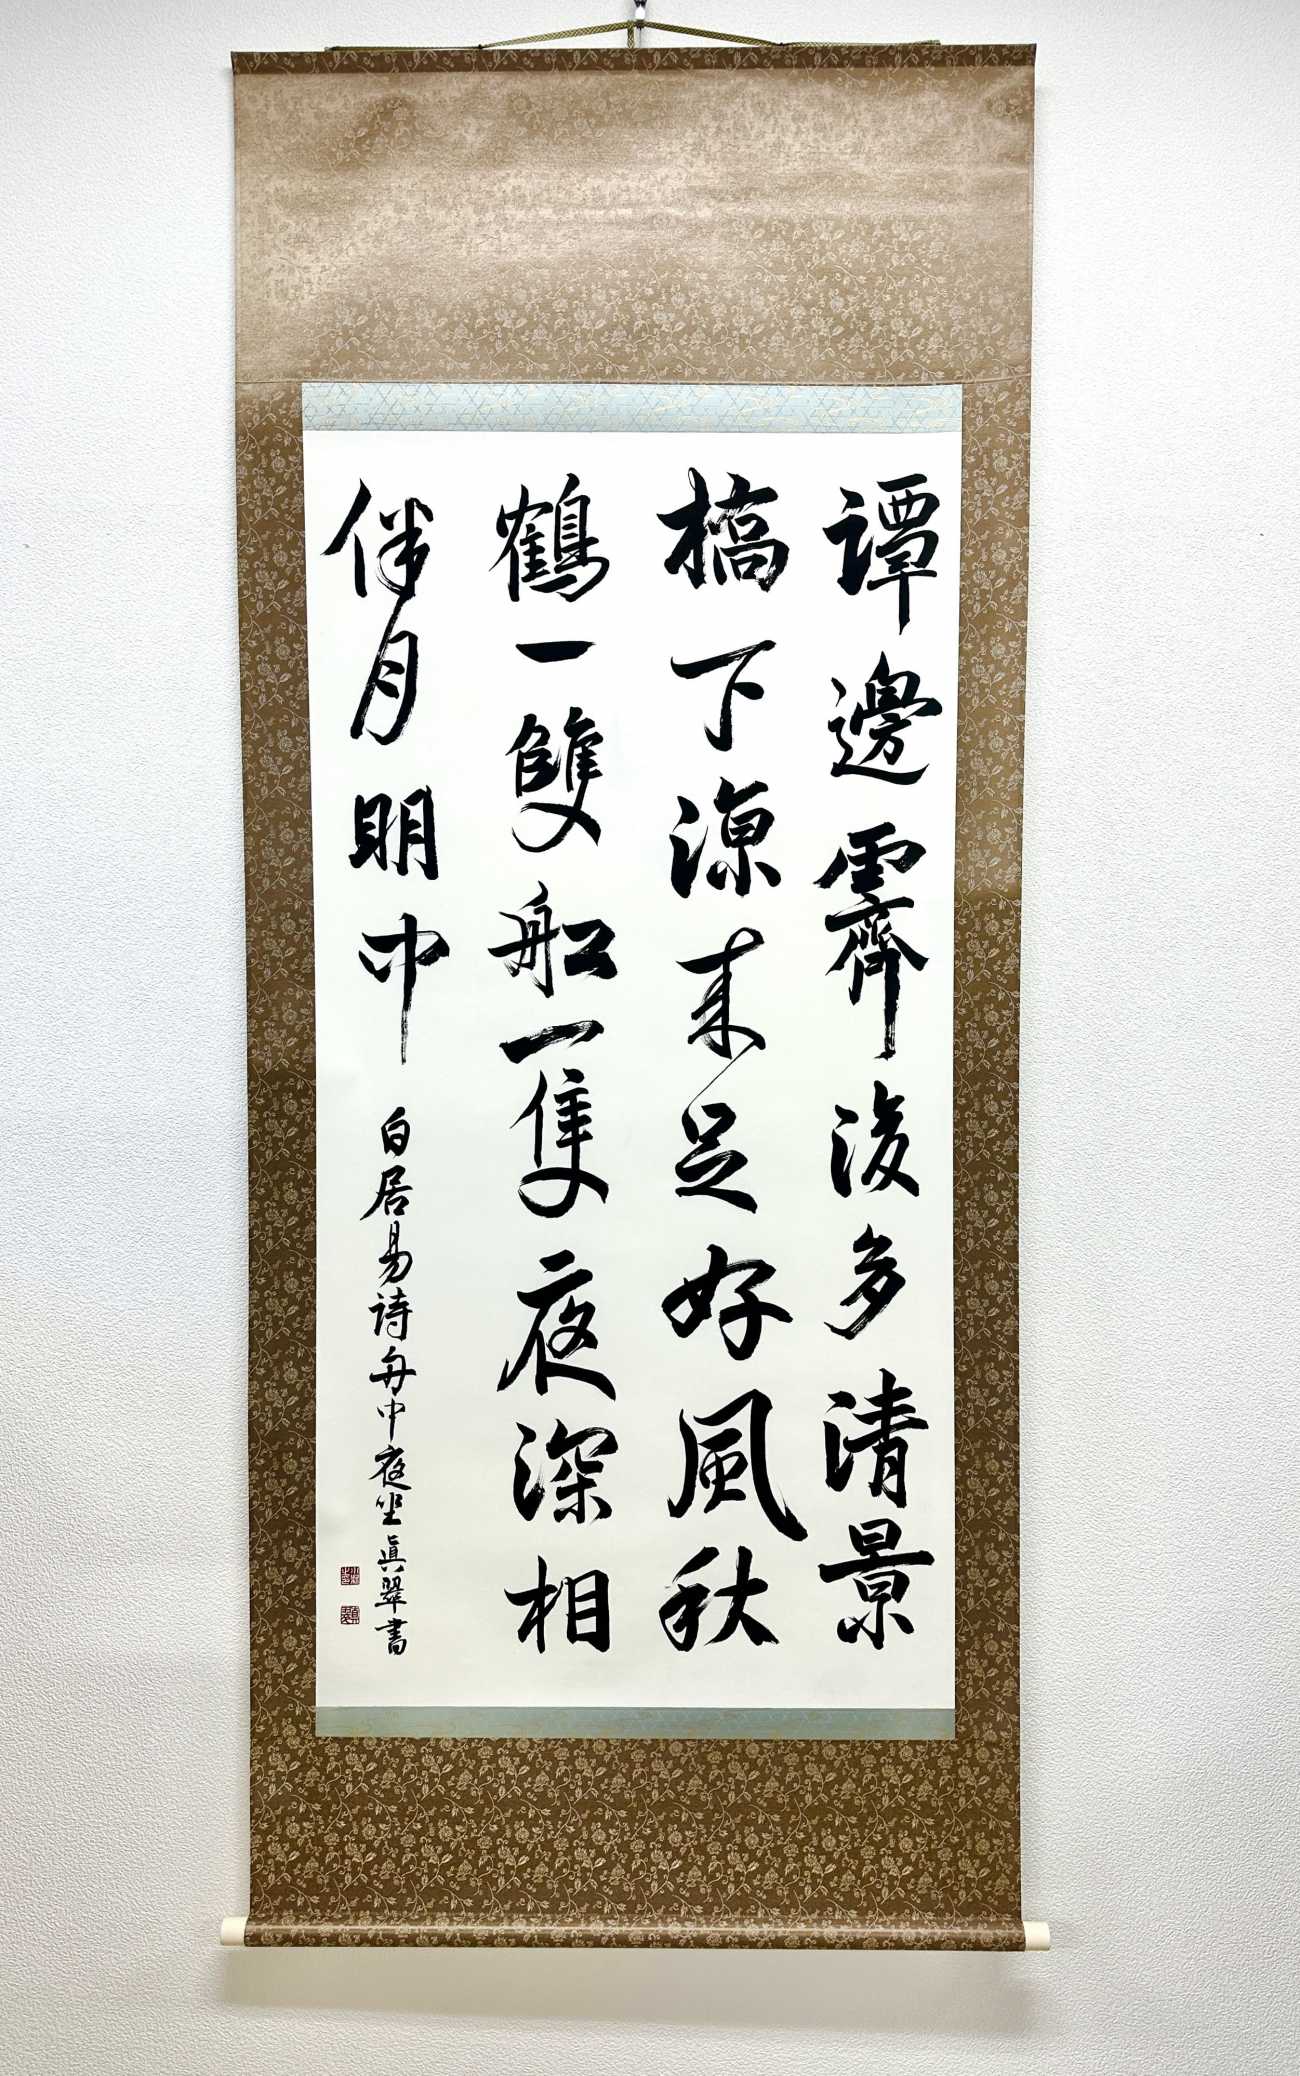 譚邊霽後多清景
橋下涼来足好風秋
鶴一雙船一隻夜深相
伴月明中
白居易詩舟中夜坐真翠書